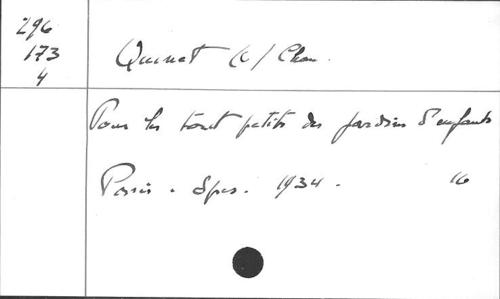 296
173
4
Quinet (C/ Chan.
Pour les tout petits des jardins d'enfants
Paris. Spes. 1934. 16